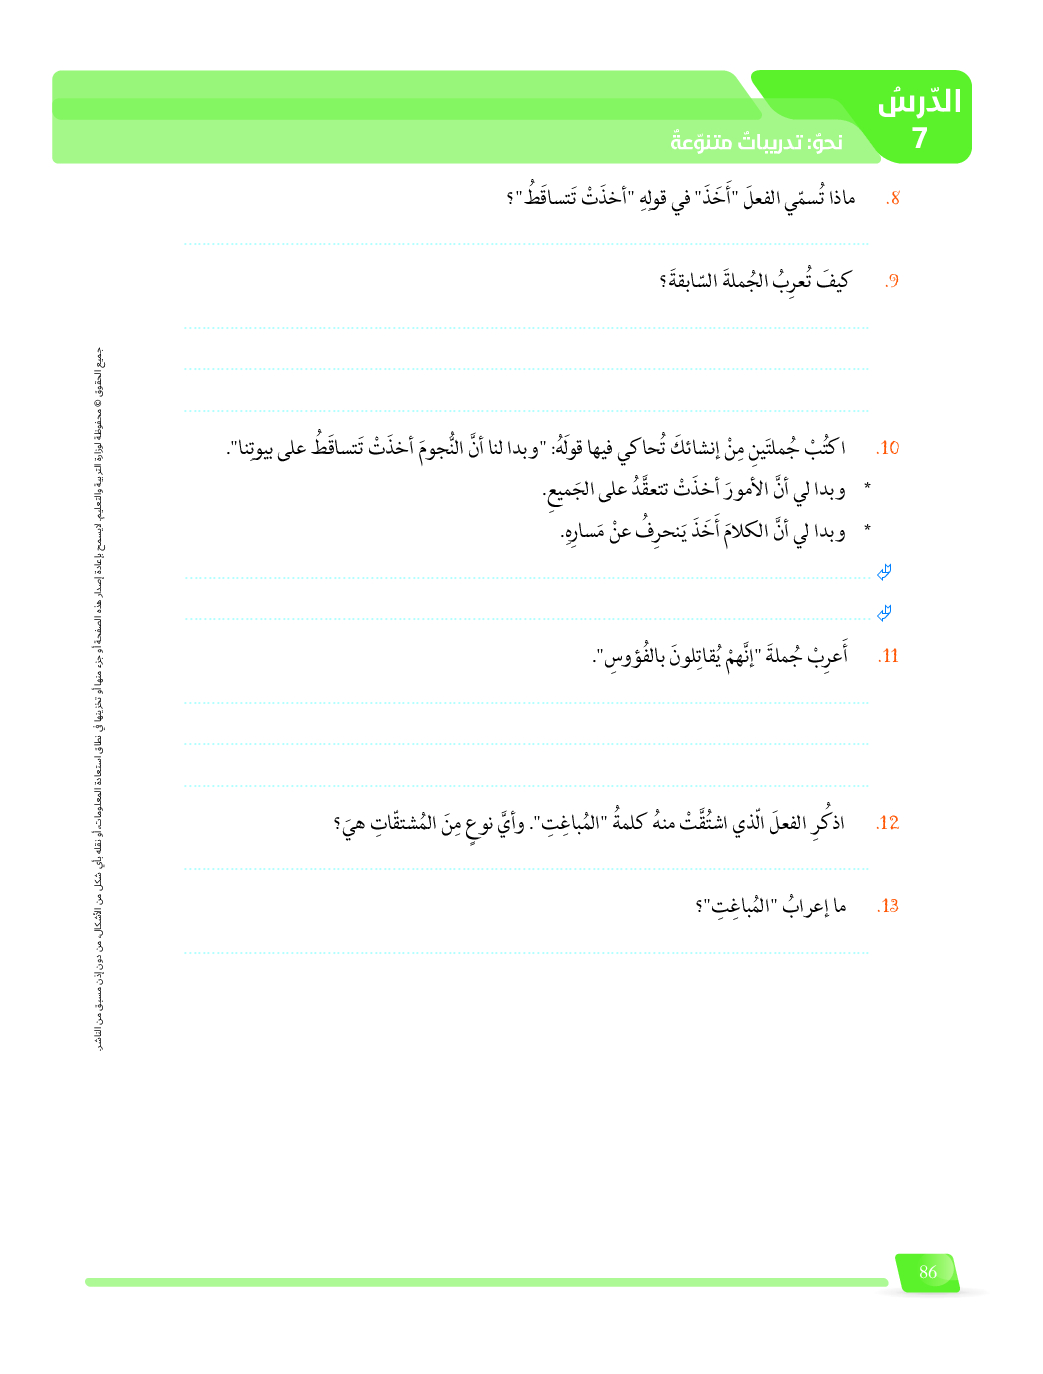 الدّرسُ
7
نحوٌ: تدريباتٌ متنوّعةٌ
8. ماذا تُسمّي الفعلَ "أَخَذَ" في قولِهِ "أخذَتْ تَتساقَطُ"؟
9. كيفَ تُعرِبُ الجُملةَ السّابقةَ؟
10. اكتُبْ جُملتَينِ مِنْ إنشائكَ تُحاكي فيها قولَهُ: "وبدا لنا أنَّ النُّجومَ أخذَتْ تَتساقَطُ على بيوتِنا".
* وبدا لي أنَّ الأمورَ أخذَتْ تتعقَّدُ على الجَميعِ.
* وبدا لي أنَّ الكلامَ أَخَذَ يَنحرِفُ عنْ مَسارِهِ.
11. أَعرِبْ جُملةَ "إنَّهمْ يُقاتِلونَ بالفُؤوسِ".
12. اذكُرِ الفعلَ الّذي اشتُقَّتْ منهُ كلمةُ "المُباغِتِ". وأيَّ نوعٍ مِنَ المُشتقّاتِ هيَ؟
13. ما إعرابُ "المُباغِتِ"؟
جميع الحقوق © محفوظة لوزارة التربية والتعليم. لايسمح بإعادة إصدار هذه الصفحة أو جزء منها أو تخزينها في نطاق استعادة المعلومات، أو نقله بأي شكل من الأشكال، من دون إذن مسبق من الناشر.
86